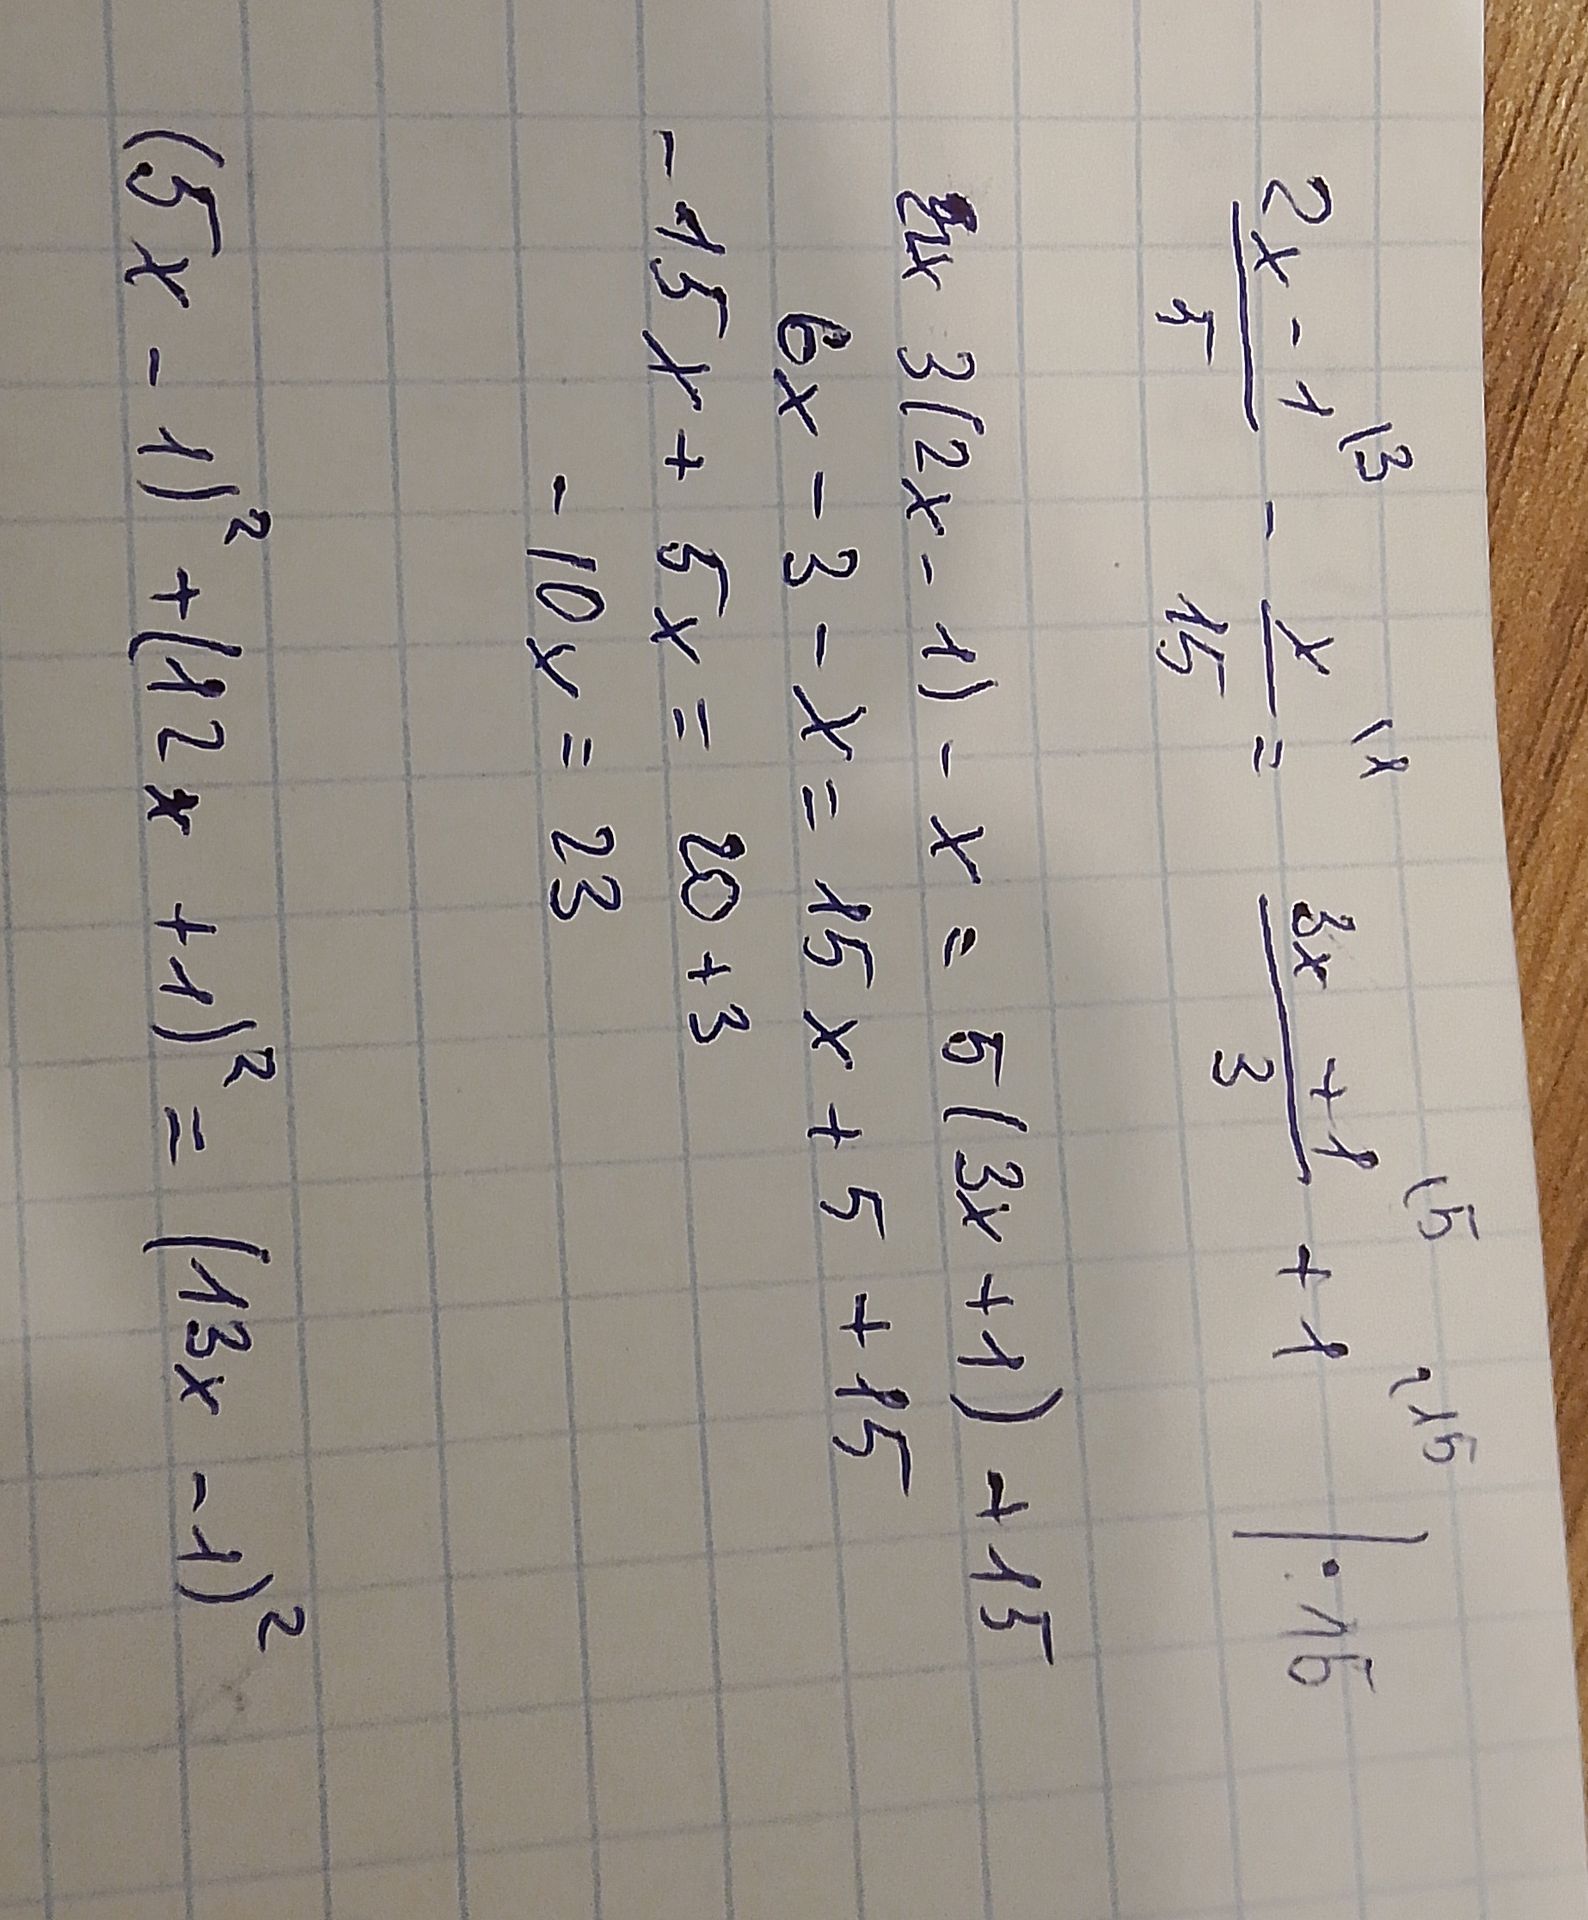 2x - 1 \3 / 5 - x \1 / 15 = 3x + 1 \5 / 3 + 1 \15 | · 15
3(2x - 1) - x = 5(3x + 1) + 15
6x - 3 - x = 15x + 5 + 15
-15x + 5x = 20 + 3
-10x = 23
(5x - 1)² + (12x + 1)² = (13x - 1)²